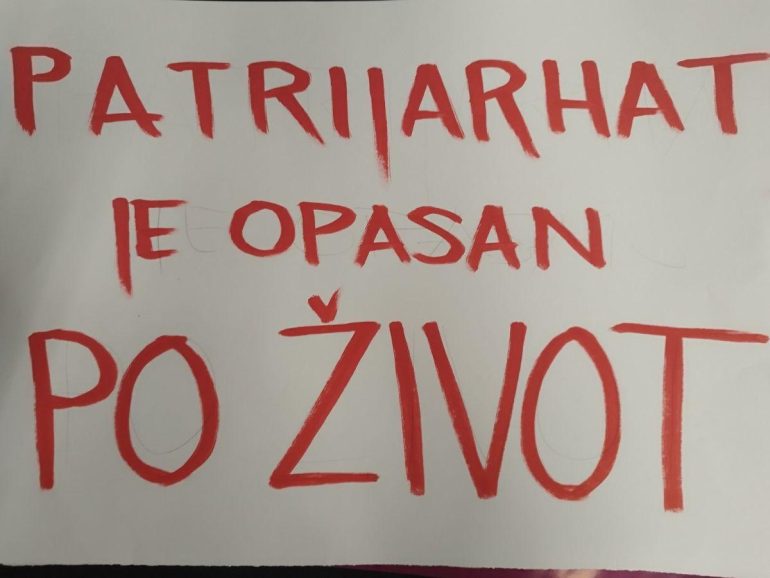 PATRIJARHAT
JE OPASAN
PO ŽIVOT